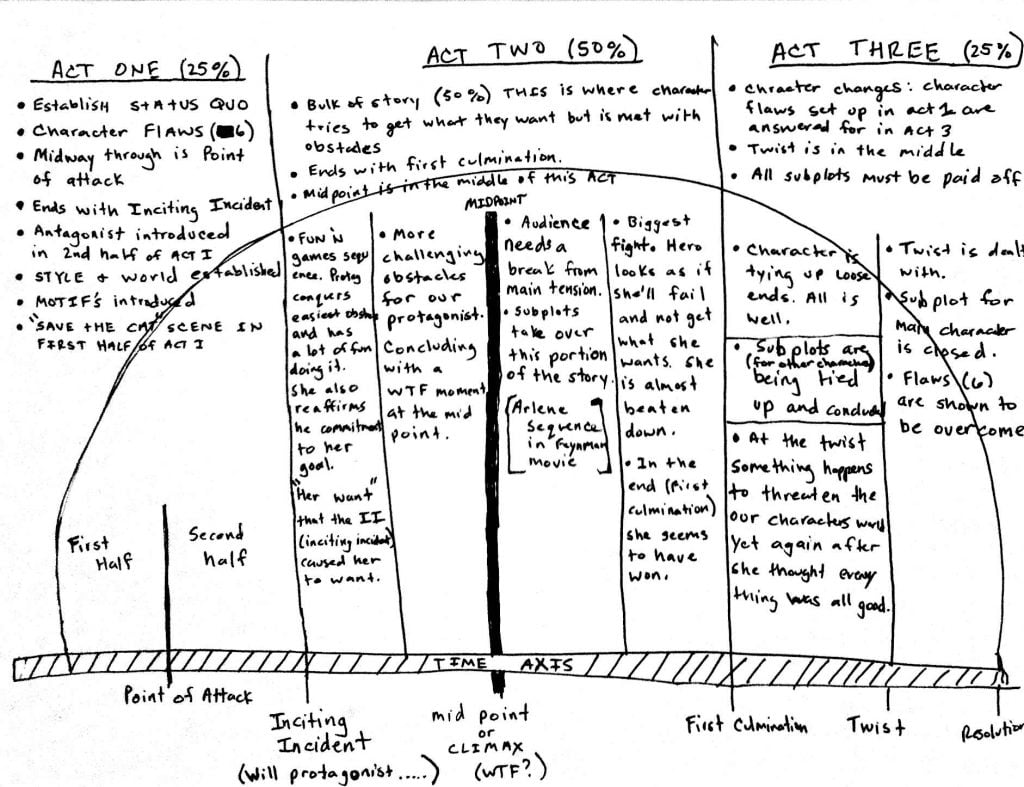 ACT ONE (25%)
• Establish STATUS QUO
• Character FLAWS (6)
• Midway through is Point
of attack
• Ends with Inciting Incident
• Antagonist introduced
in 2nd half of ACT I
• STYLE & world established
• MOTIF's introduced
• "SAVE THE CAT" SCENE IN
FIRST HALF of ACT I
First
Half
Second
half
ACT TWO (50%)
• Bulk of story (50%) THIS is where character
tries to get what they want but is met with
obstacles
• Ends with first culmination.
• Midpoint is in the middle of this ACT
MIDPOINT
• FUN 'N
games sequ
ence. Protag
conquers
easiest obstac
and has
a lot of fun
doing it.
She also
reaffirms
he commitment
to her
goal.
"Her want"
that the II
(inciting incident)
caused her
to want.
• More
challenging
obstacles
for our
protagonist.
Concluding
with a
WTF moment
at the mid
point.
• Audience
needs a
break from
main tension.
• Subplots
take over
this portion
of the story.
[Arlene
Sequence
in Feynman
movie]
• Biggest
fight. Hero
looks as if
she'll fail
and not get
what she
wants. She
is almost
beaten
down.
• In the
end (first
culmination)
she seems
to have
won.
ACT THREE (25%)
• Chracter changes: character
flaws set up in act 1 are
answered for in ACT 3
• Twist is in the middle
• All subplots must be paid off
• Character is
tying up loose
ends. All is
well.
• Subplots are
(for other characters)
being tied
up and conclude
• At the twist
something happens
to threaten the
our characters world
yet again after
she thought every
thing was all good.
• Twist is dealt
with.
• Subplot for
Main character
is closed.
• Flaws (6)
are shown to
be overcome
TIME AXIS
Point of Attack
Inciting
Incident
(Will protagonist.....)
mid point
or
CLIMAX
(WTF?)
First Culmination
Twist
Resolution